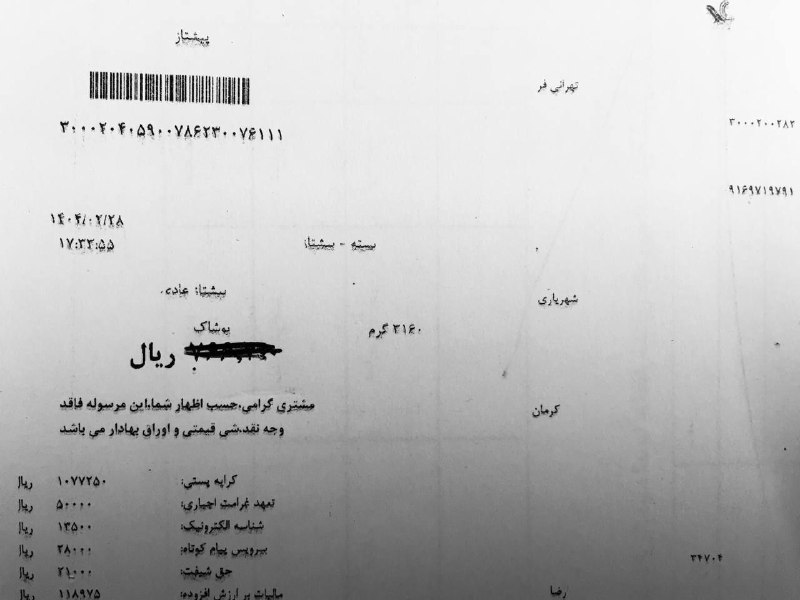 پیشتاز
تهرانی فر
۳۰۰۰۲۰۴۰۵۹۰۰۷۸۶۲۳۰۰۷۶۱۱۱
۳۰۰۰۲۰۰۲۸۲
۹۱۶۹۷۱۹۷۹۱
۱۴۰۴/۰۲/۲۸
۱۷:۳۳:۵۵
بسته - پیشتاز
پیشتاز عادی
شهریاری
پوشاک
۳۱۶۰ گرم
ریال
مشتری گرامی،حسب اظهار شما،این مرسوله فاقد
وجه نقد،شی قیمتی و اوراق بهادار می باشد
کرمان
کرایه پستی: ۱۰۷۷۲۵۰ ریال
تعهد غرامت اجباری: ۵۰۰۰۰ ریال
شناسه الکترونیک: ۱۳۵۰۰ ریال
سرویس پیام کوتاه: ۲۸۰۰۰ ریال
۳۴۷۰۴
حق شیفت: ۲۱۰۰۰ ریال
مالیات بر ارزش افزوده: ۱۱۸۹۷۵ ریال
رضا